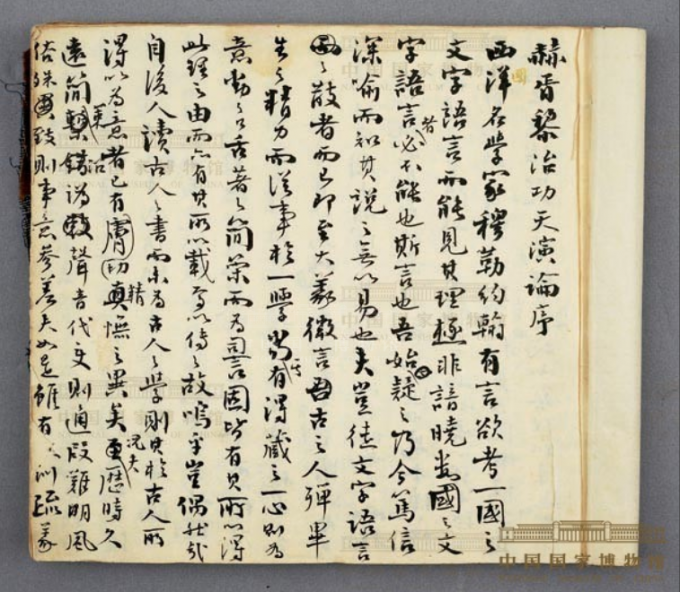 赫胥黎治功天演論序
西洋名學家穆勒約翰有言欲考一國之
文字語言而能見其理極非諳曉數國之文
字語言者必不能也斯言也吾始疑之乃今篤信
深喻而知其說之無以易也夫豈徒文字語言
之散者而已即至大義微言古之人殫畢
生之精力而從事於一學當其有得藏之一心則為
意動之口舌著之簡策而為詞固皆有其所以得
此理之由而亦有其所以載焉以傳之故嗚乎豈偶然哉
自後人讀古人之書而未為古人之學則其於古人所
得以為意者已有膚切精憮之異矣況夫歷時久
遠簡策沿錯譌聲音代變則通叚難明風
俗殊致則事意參差夫如是雖有訓疏義
中国国家博物馆